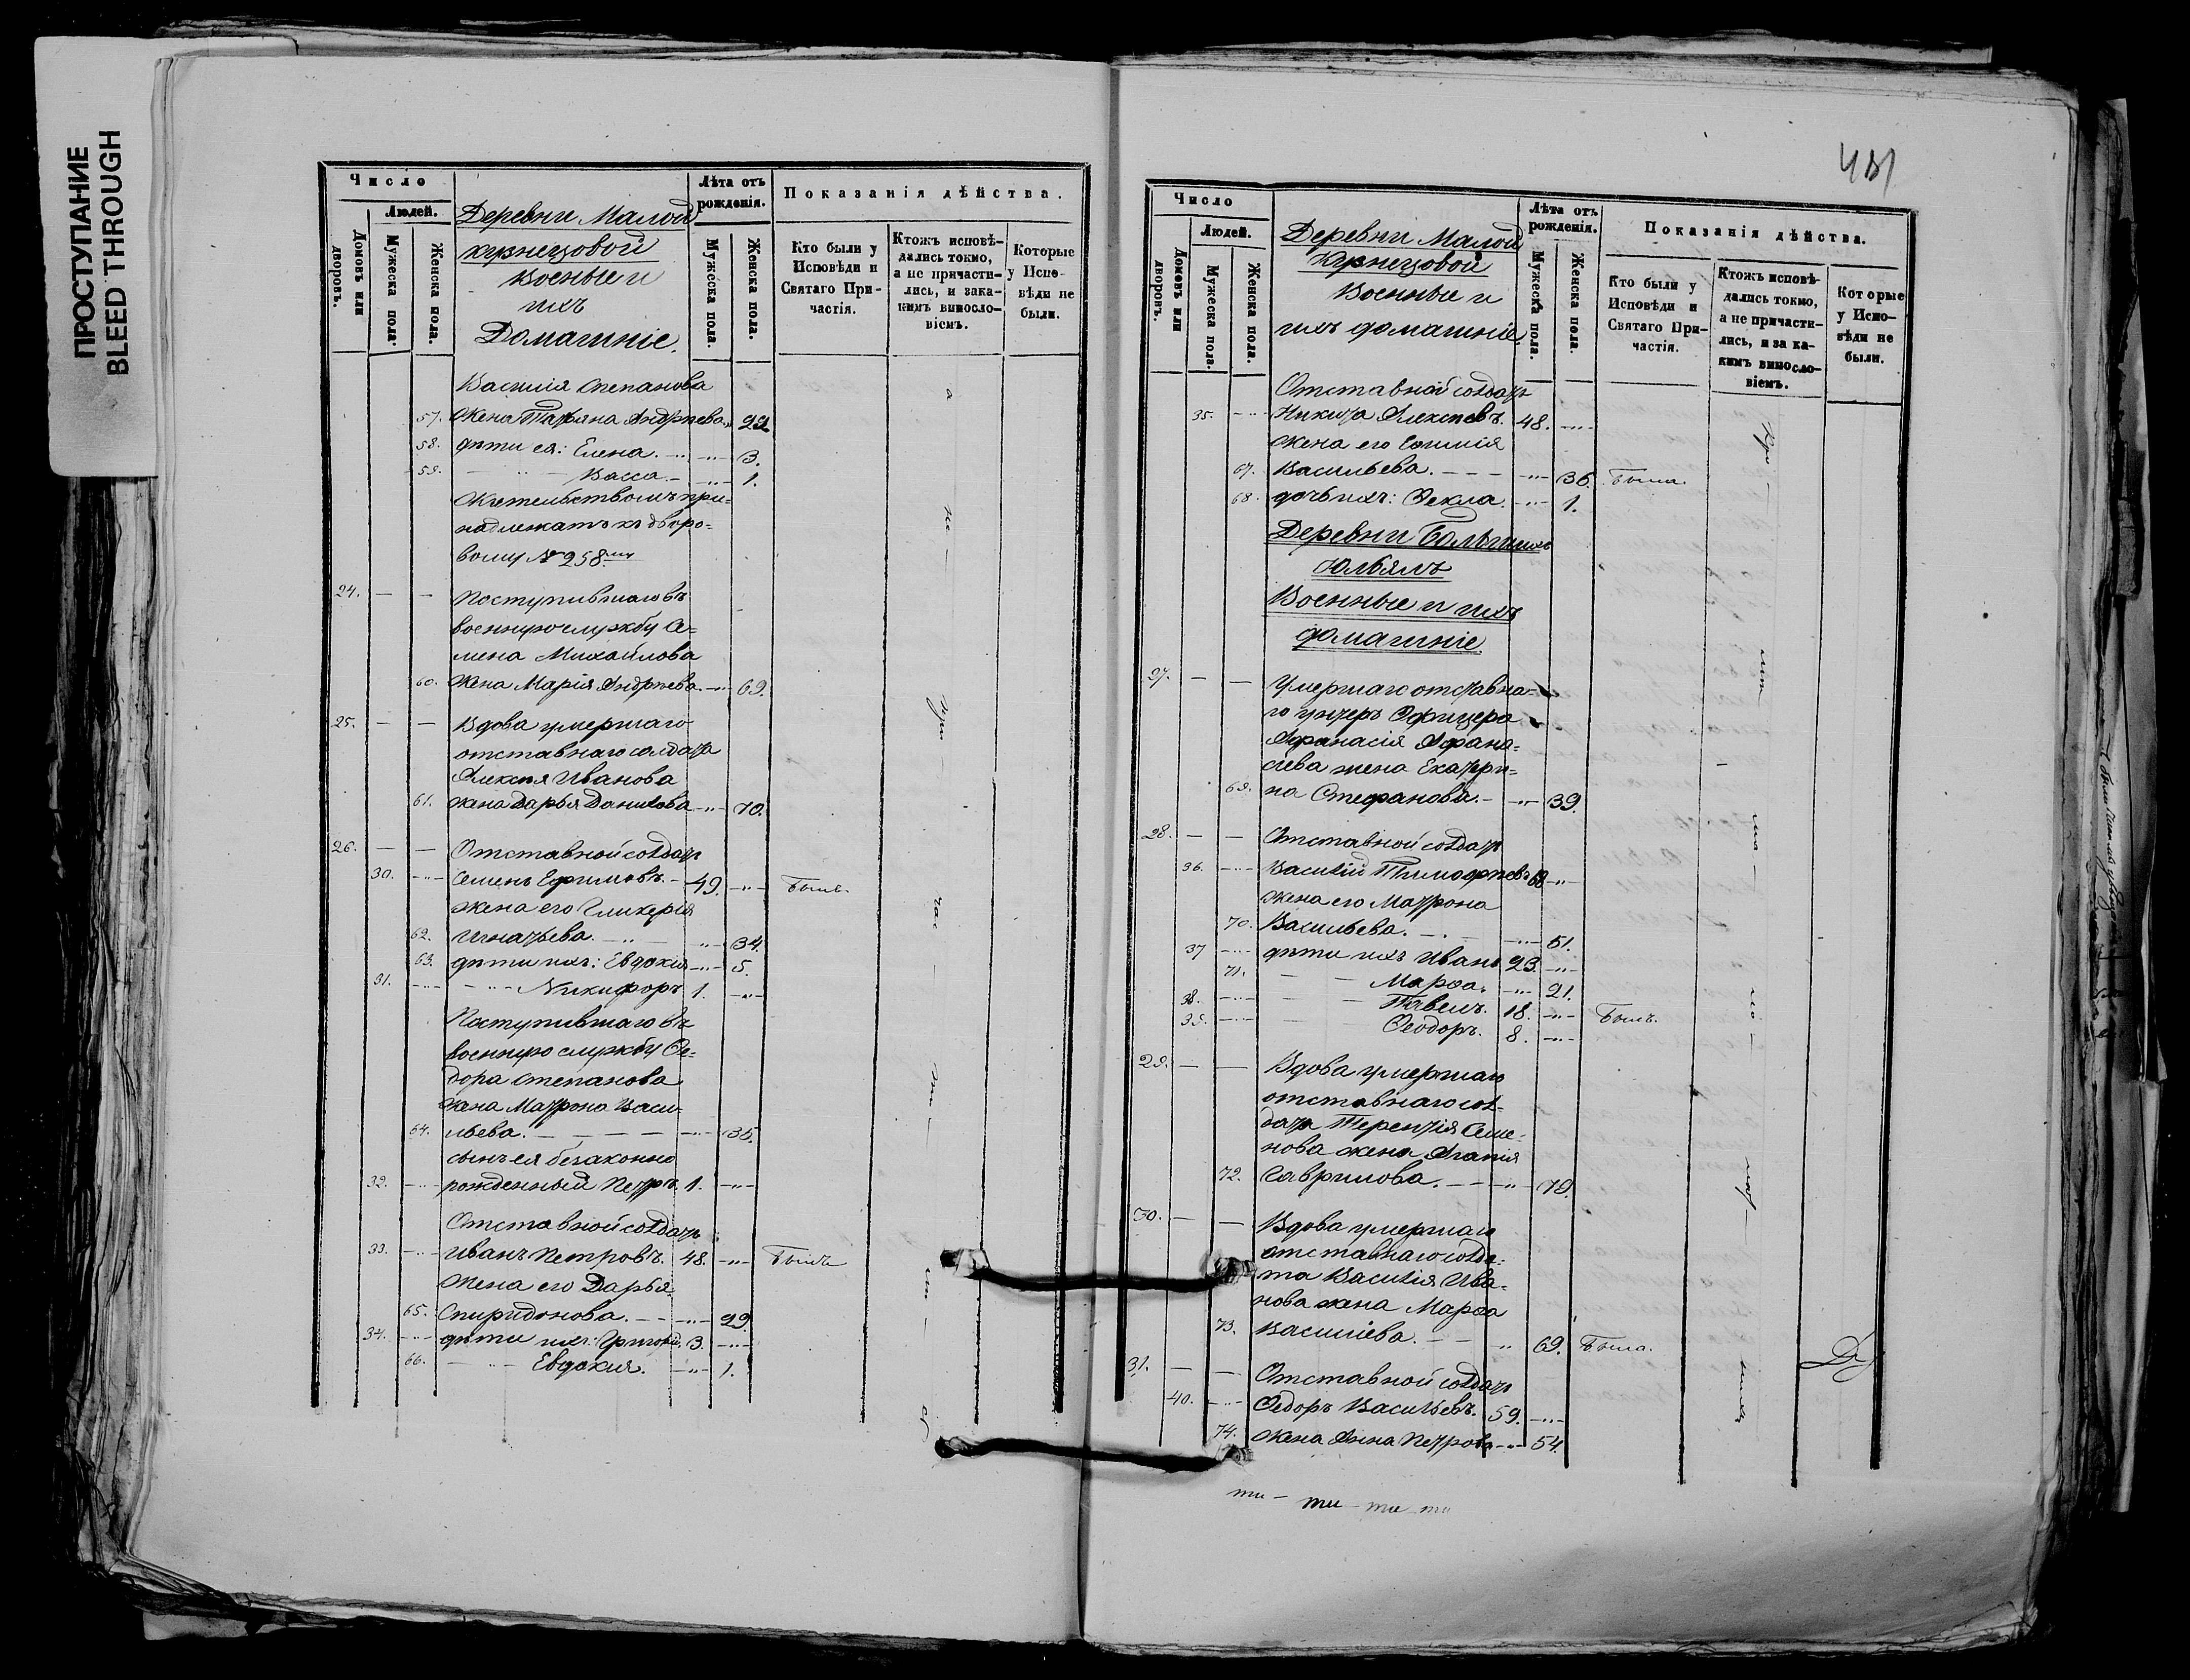 ПРОСТУПАНИЕ
BLEED THROUGH
Число
Людей.
Домовъ или дворовъ.
Мужеска пола.
Женска пола.
Деревни Малой
Кузнецовой
Военные и
ихъ
Домашніе.
Лѣта отъ рожденія.
Мужеска пола.
Женска пола.
Показанія дѣйства.
Кто были у Исповѣди и Святаго Причастія.
Ктожъ исповѣдались токмо, а не причастились, и за какимъ винословіемъ.
Которые у Исповѣди не были.
Василія Степанова
57. жена Татьяна Андреева -"- 22
58. дѣти ея: Елена. -"- 3.
59. Васса. -"- 1.
Жительствомъ при-
надлежатъ къ дворо-
вому № 258му
24. — — Поступившаго въ
военную службу Се-
мена Михайлова
60. жена Марія Андреева -"- 69.
25. — — Вдова умершаго
отставнаго солдата
Алексѣя Иванова
61. жена Дарья Данилова -"- 70.
26. — — Отставной солдатъ
30. -"- Семенъ Ефимовъ. 49. -"- Былъ.
жена его Гликерія
62. Игнатьева. -"- 34.
63. дѣти ихъ: Евдокія -"- 5.
31. -"- Никифоръ 1. -"-
Поступившаго въ
военную службу Ѳе-
дора Степанова
жена Матрона Васи-
64. льева. -"- 35.
сынъ ея безаконно
32. -"- рожденный Петръ. 1. -"-
Отставной солдатъ
33. -"- Иванъ Петровъ. 48. -"- Былъ
жена его Дарья
65. Спиридонова. -"- 29.
34. -"- дѣти ихъ: Григорій. 3. -"-
66. Евдокия. -"- 1.
431
Число
Людей.
Домовъ или дворовъ.
Мужеска пола.
Женска пола.
Деревни Малой
Кузнецовой
Военные и
ихъ домашніе
Лѣта отъ рожденія.
Мужеска пола.
Женска пола.
Показанія дѣйства.
Кто были у Исповѣди и Святаго Причастія.
Ктожъ исповѣдались токмо, а не причастились, и за какимъ винословіемъ.
Которые у Исповѣди не были.
Отставной солдатъ
35. -"- Никита Алексѣевъ. 48. -"-
жена его
67. Васильева. -"- 36. Была.
68. дочь ихъ: Ѳекла. -"- 1.
Деревни Большихъ
Юльялъ
Военные и ихъ
домашніе.
27. — — Умершаго отставна-
го унтеръ Офицера
Афанасія Афана-
сіева жена Екатери-
69. на Стефанова. -"- 39.
28. — — Отставной солдатъ
36. -"- Василій Тимофѣевъ 68 -"-
жена его Матрона
70. Васильева. -"- 51.
37 -"- дѣти ихъ Иванъ 23. -"-
71. Марѳа. -"- 21.
38. -"- Павелъ. 18. -"- Былъ.
39. -"- Ѳеодоръ. 8. -"-
29. — — Вдова умершаго
отставнаго сол-
дата Терентія Семе-
нова жена Агапія
72. Гаврилова. -"- 79.
30. — — Вдова умершаго
отставнаго солда-
та Василія Ива-
нова жена Марѳа
73. Василіева. " 69. Была.
31. — — Отставной солдатъ
40. -"- Ѳедоръ Васильевъ. 59. -"-
74. жена Анна Петрова -"- 54.
ти - ти - ти ти